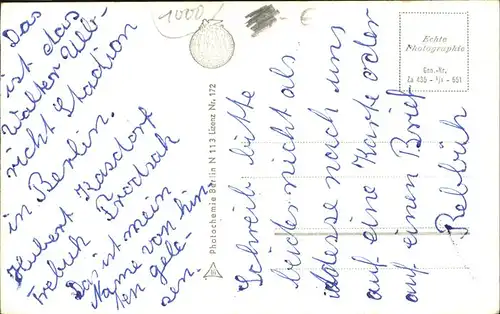 Das
ist das
Walter Ulb-
richt Stadion
in Berlin.
Hubert Kasdorf
Trebuh Frodsak
Das ist mein
Name von hin
ten gele-
sen.
1000
€
Photochemie Berlin N 113 Lizenz Nr. 172
Echte
Photographie
Gen.-Nr.
Schreib bitte
beides nicht als
Adesse nach uns
auf eine Karte oder
auf einen Brief